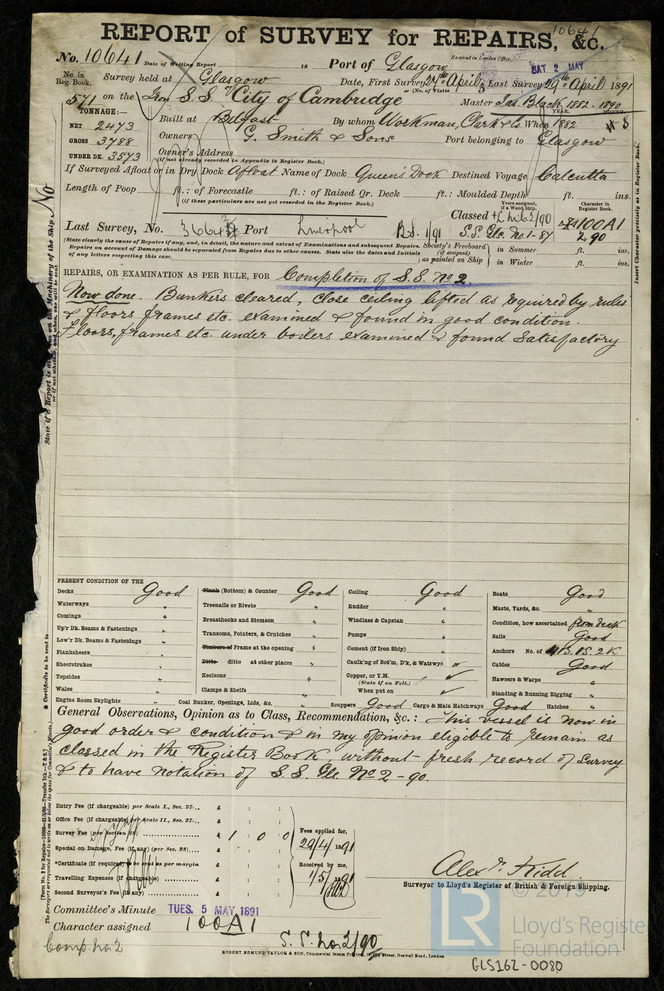 REPORT of SURVEY for REPAIRS, &c.
10641
No. 10641 Date of Writing Report 18 Port of Glasgow Received in London Office,
SAT 2 MAY
No. in Reg. Book.
Survey held at Glasgow Date, First Survey 27th April Last Survey 29th April 1891
(No. of Visits 3)
571 on the S.S. "City of Cambridge" Master Jas. Black 1882-1890
TONNAGE:—
NET 2473
GROSS 3788
UNDER DK. 3573
Built at Belfast By whom Workman, Clark & Co When 1882
YEAR. MONTH.
Owners G. Smith & Sons Port belonging to Glasgow
Owner's Address
(if not already recorded in Appendix to Register Book.)
If Surveyed Afloat or in Dry Dock Afloat Name of Dock Queens Dock Destined Voyage Calcutta
Length of Poop ft.: of Forecastle ft.: of Raised Qr. Deck ft.: Moulded Depth ft. ins.
(if these particulars are not yet recorded in the Register Book.)
Years assigned, if a Wood Ship.
Character in Register Book.
Classed
100A1
2.90
Last Survey, No. Port Liverpool B.S. 1/91 S.S. Gls. No.1-87
(State clearly the cause of Repairs if any, and, in detail, the nature and extent of Examinations and subsequent Repairs. Repairs on account of Damage should be separated from Repairs due to other causes. State also the dates and initials of any letters respecting this case.
Society's Freeboard (if assigned) as painted on Ship
in Summer ft. ins.
in Winter ft. ins.
REPAIRS, OR EXAMINATION AS PER RULE, FOR Completion of S.S. No 2.
Now done. Bunkers cleared, close ceiling lifted as required by rules
& floors frames etc. examined & found in good condition.
Floors, frames etc. under boilers examined & found Satisfactory
PRESENT CONDITION OF THE
Decks Good
Waterways "
Comings "
Up'r Dk. Beams & Fastenings "
Low'r Dk. Beams & Fastenings "
Planksheers "
Sheerstrakes "
Topsides "
Wales "
Engine Room Skylights "
Plank (Bottom) & Counter Good
Treenails or Rivets "
Breasthooks and Stemson "
Transoms, Pointers, & Crutches "
Timbers of Frame at the opening "
Ditto ditto at other places "
Keelsons "
Clamps & Shelfs "
Coal Bunker, Openings, Lids, &c. "
Ceiling Good
Rudder "
Windlass & Capstan "
Pumps "
Cement (if Iron Ship) "
Caulk'ng of Bot'm, D'k, & Watrwys
Copper, or Y.M.
(State if on Felt.)
When put on
Scuppers Good Cargo & Main Hatchways Good Hatches "
Boats Good
Masts, Yards, &c. "
Condition, how ascertained from Deck
Sails Good
Anchors No. of
Cables Good
Hawsers & Warps "
Standing & Running Rigging "
General Observations, Opinion as to Class, Recommendation, &c.: This vessel is now in
good order & condition & in my opinion eligible to remain as
classed in the Register Book without fresh record of survey
& to have notation of S.S. Gls. No 2-90.
Entry Fee (If chargeable) per Scale I., Sec. 27... £ : :
Office Fee (If chargeable) per Scale II., Sec. 27... £ : :
Survey Fee (per Section 28) £ 1 : 0 : 0
Special on Damage, Fee (If any) (per Sec. 28) £ : :
*Certificate (If required) to be sent as per margin £ : :
Travelling Expenses (If chargeable) £ : :
Second Surveyor's Fee (If any) £ : :
Fees applied for,
29/4/1891
Received by me,
1/5/1891
Alexr. Kidd.
Surveyor to Lloyd's Register of British & Foreign Shipping.
Committee's Minute TUES. 5 MAY 1891
Character assigned 100A1
S.S. No. 2/90
Comp. No. 2
ROBERT EDMUND TAYLOR & SON, Commercial Steam Printers, Goswell Road, London.
© 2019
LR Lloyd's Register Foundation
GLS162-0080
Insert Character precisely as in Register Book.